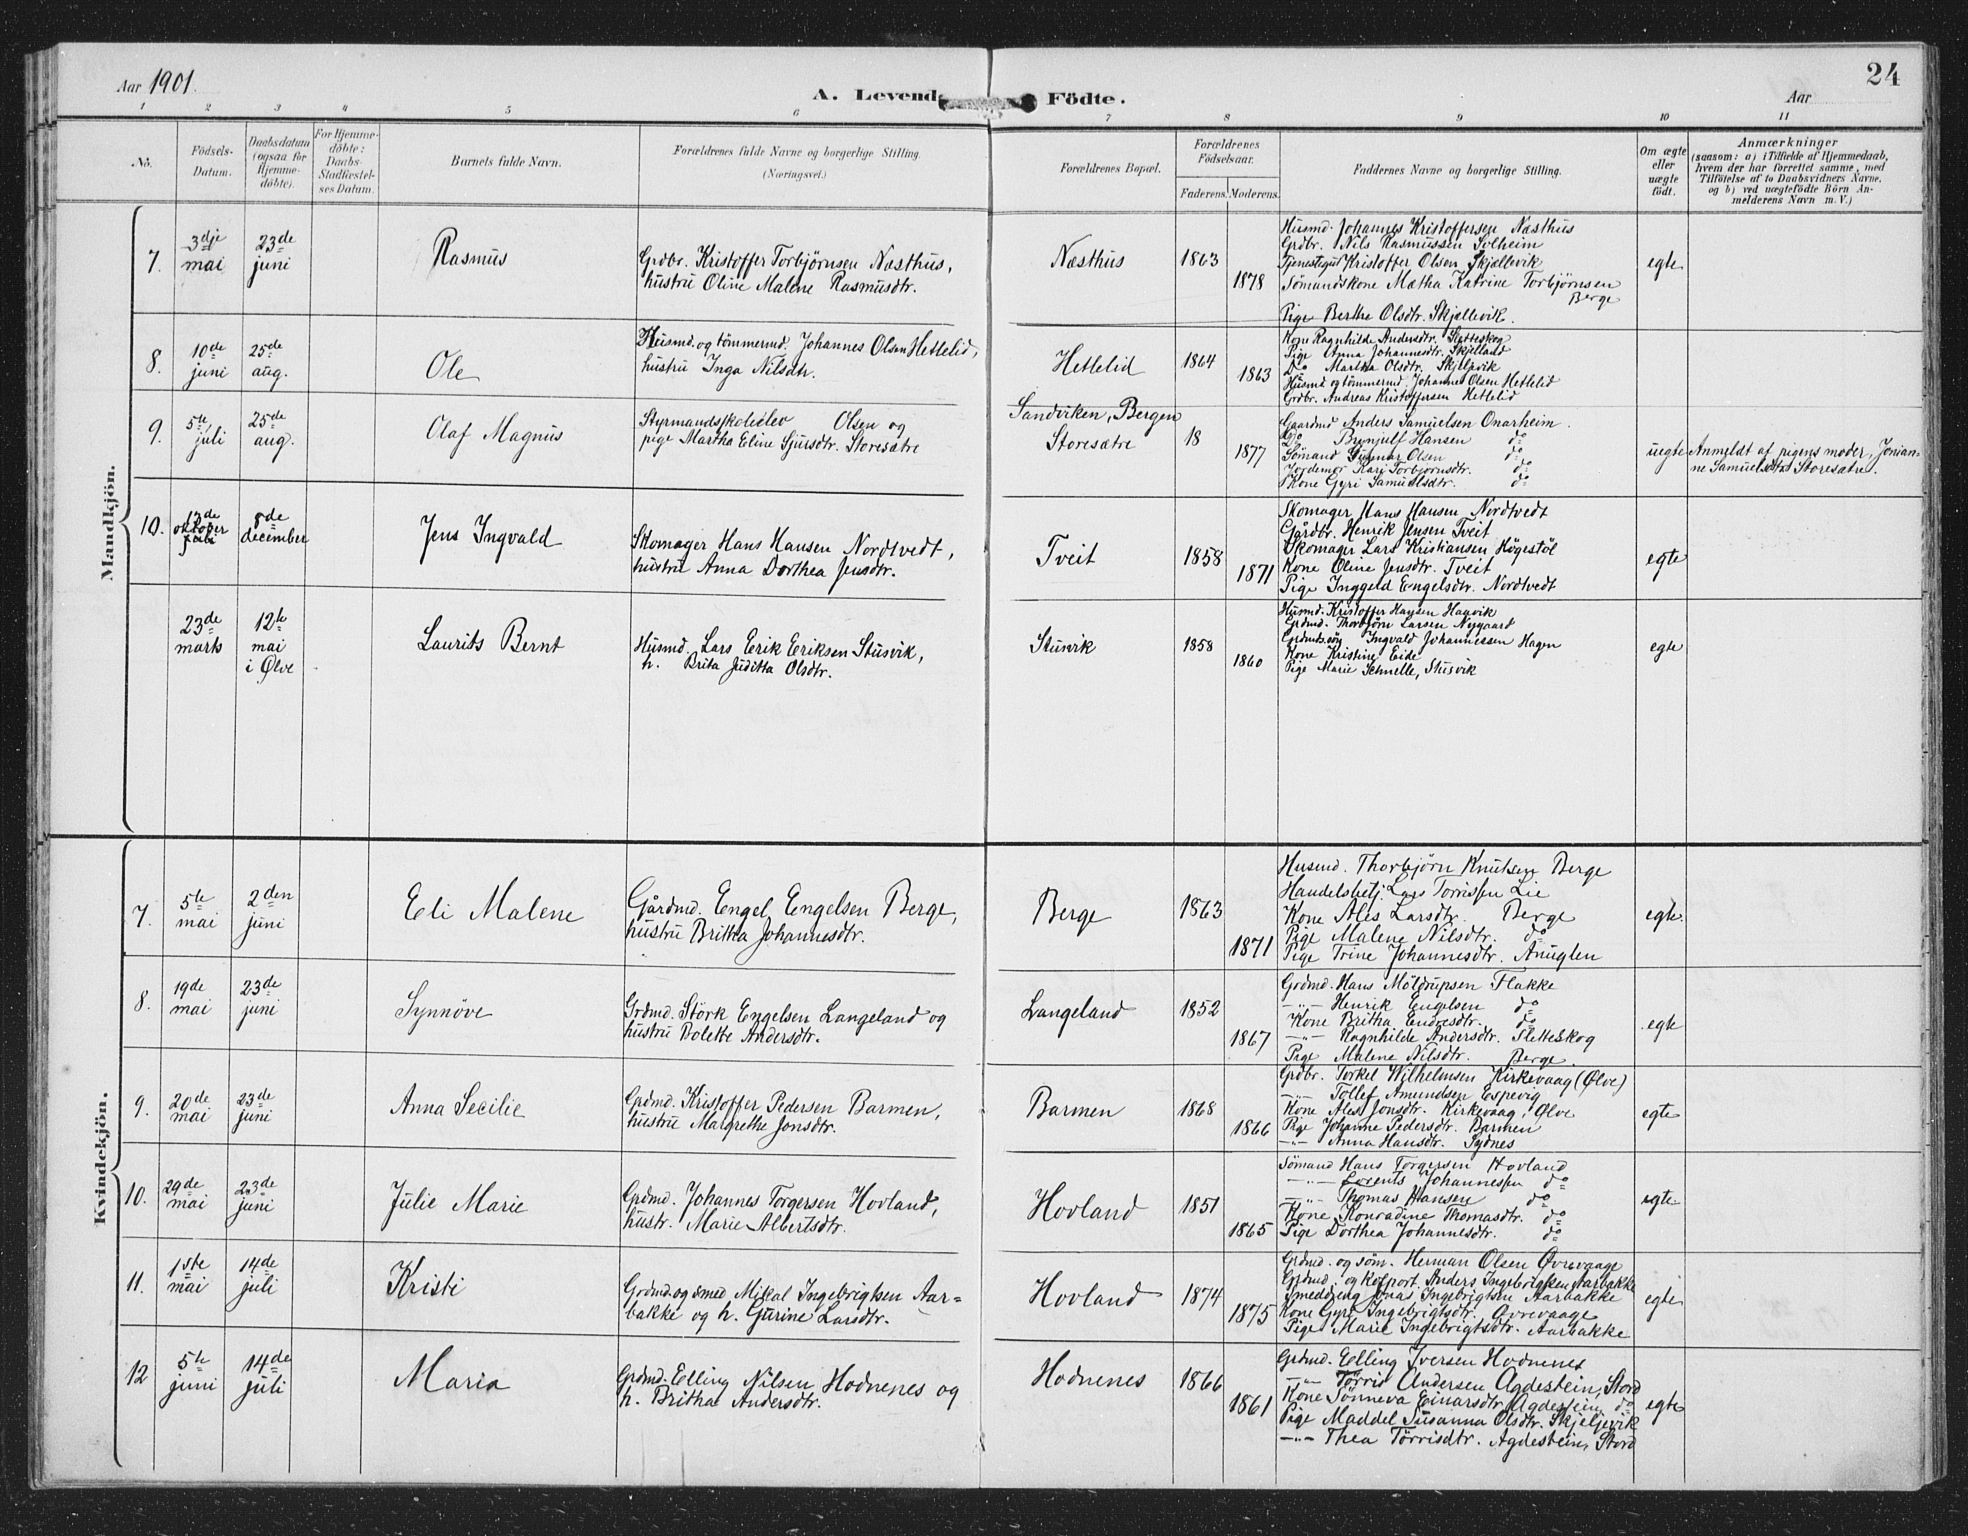 Aar 1901.
A. Levende Födte.
24
Aar
1 2 3 4 5 6 7 8 9 10 11
No.
Födsels-
Datum.
Daabsdatum
(ogsaa for
Hjemme-
döbte).
For Hjemme-
döbte:
Daabs-
Stadfæstel-
ses Datum.
Barnets fulde Navn.
Forældrenes fulde Navne og borgerlige Stilling.
(Næringsvei.)
Forældrenes Bopæl.
Forældrenes
Födselsaar.
Faderens. Moderens.
Faddernes Navne og borgerlige Stilling.
Om ægte
eller
uægte
födt.
Anmærkninger
(saasom: a) i Tilfælde af Hjemmedaab,
hvem der har forrettet samme, med
Tilföielse af to Daabsvidners Navne,
og b) ved uægtefödte Börn An-
melderens Navn m. V.)
Mandkjön.
7.
3dje
mai
23de
juni
Rasmus
Grdbr. Kristoffer Torbjørnsen Næsthus,
hustru Oline Malene Rasmusdtr.
Næsthus
1863
1878
Husmd. Johannes Kristoffersen Næsthus
Grdbr. Nils Rasmussen Solheim
Tjenestegut Kristoffer Olsen Skjellevik
Sømandskone Mætha Katrine Torbjørnsen
Berge
Pige Berthe Olsdtr. Skjellevik.
egte
8.
10de
juni
25de
aug.
Ole
Husmd. og tömmermd. Johannes Olsen Hetlelid,
hustru Inga Nilsdtr.
Hetlelid
1864
1863
Kone Ragnhilde Andersdtr. Sletteskog
Pige Anna Johannesdtr. Skjelland
Do Martha Olsdtr. Skjelvik
Husmd og tömmermd. Johannes Olsen Hetlelid
Grdbr. Andreas Kristoffersen Hetlelid
9.
5te
juli
25de
aug.
Olaf Magnus
Styrmandsskoleelev Olsen og
pige Martha Eline Sjursdtr. Storesætre
Sandviken, Bergen
Storesætre
18
1877
Gaardmd Anders Samuelsen Onarheim.
Do Brynjulf Hansen do
Sømand Gunnar Olsen do
Jordemor Kari Torbjørnsdtr. do
Kone Gyri Samuelsdtr. do
uegte
Anmeldt af pigens moder, Jonian-
ne Samuelsdtr Storesætre.
10.
13de
oktober
juli
8de
december
Jens Ingvald
Skomager Hans Hansen Nordtvedt,
hustru Anna Dorthea Jensdtr.
Tveit
1858
1871
Skomager Hans Hansen Nordtvedt
Gårdbr. Henrik Jensen Tveit
Skomager Lars Kristiansen Högestöl
Kone Oline Jensdtr. Tveit
Pige Inggeld Engelsdtr. Nordtvedt
egte
23de
marts
12te
mai
i Ølve
Laurits Bernt
Husmd. Lars Erik Eriksen Stusvik,
h. Brita Juditha Olsdtr.
Stusvik
1858
1860
Husmd. Kristoffer Hansen Haavik
Grdmd. Thorbjörn Larsen Nygaard
Grdmdssön Ingvald Johannessen Hagen
Kone Kristine Eide
Pige Marie Schnelle, Stusvik
egte
Kvindekjön.
7.
5te
mai
2den
juni
Eli Malene
Gårdmd. Engel Engelsen Berge,
hustru Brittha Johannesdtr.
Berge
1863
1871
Husmd. Thorbjörn Knutsen Berge
Handelsbetj. Lars Torrissen Lie
Kone Ales Larsdtr. Berge
Pige Malene Nilsdtr. do
Pige Trine Johannesdtr. Anuglen
egte.
8.
19de
mai
23de
juni
Synnöve
Grdmd. Störk Engelsen Langeland og
hustru Bolette Andersdtr.
Langeland
1852
1867
Grdmd. Hans Möldrupsen Flakke
-"- Henrik Engelsen do
Kone Britha Endresdtr. do
-"- Ragnhilde Andersdtr. Sletteskog
Pige Malene Nilsdtr. Berge
egte
9.
20de
mai
23de
juni
Anna Secilie
Grdmd. Kristoffer Pedersen Barmen,
hustru Margrethe Jonsdtr.
Barmen
1868
1866
Grdbr. Torkel Wilhelmsen Kirkevaag (Ølve)
-"- Tollef Amundsen Espevig
Kone Ales Jonsdtr. Kirkevaag, Ølve
Pige Johanne Pedersdtr. Barmen
-"- Anna Hansdtr. Sydnes
egte
10.
29de
mai
23de
juni
Julie Marie
Grdmd. Johannes Torgersen Hovland,
hustr. Marie Albertsdtr.
Hovland
1851
1865
Sömand Hans Torgersen Hovland
-"- Lorents Johannessen do
-"- Thomas Hansen do
Kone Konradine Thomasdtr. do
Pige Dorthea Johannesdtr. do
egte
11.
1ste
mai
14de
juli
Kristi
Grdmd og smed Mikal Ingebrigtsen Aar=
bakke og h. Gurine Larsdtr.
Hovland
1874
1875
Grdmd. og söm. Herman Olsen Øvrevaage
Grdmd. og kolport. Anders Ingebrigtsen Aarbakke
Smeddreng Jonas Ingebrigtsen Aarbakke
Kone Gyri Ingebrigtsdtr. Øvrevaage
Pige Marie Ingebrigtsdtr. Aarbakke
egte
12
5te
juni
14de
juli
Maria
Grdmd. Elling Nilsen Hodnenes og
h. Britha Andersdtr.
Hodnenes
1866
1861
Grdmd. Elling Iversen Hodnenes
-"- Törris Andersen Agdestein, Stord
Kone Sönneva Einarsdtr. Agdestein, do
Pige Maddel Susanna Olsdtr. Skjeljevik
-"- Thea Törrisdtr. Agdestein, Stord
egte